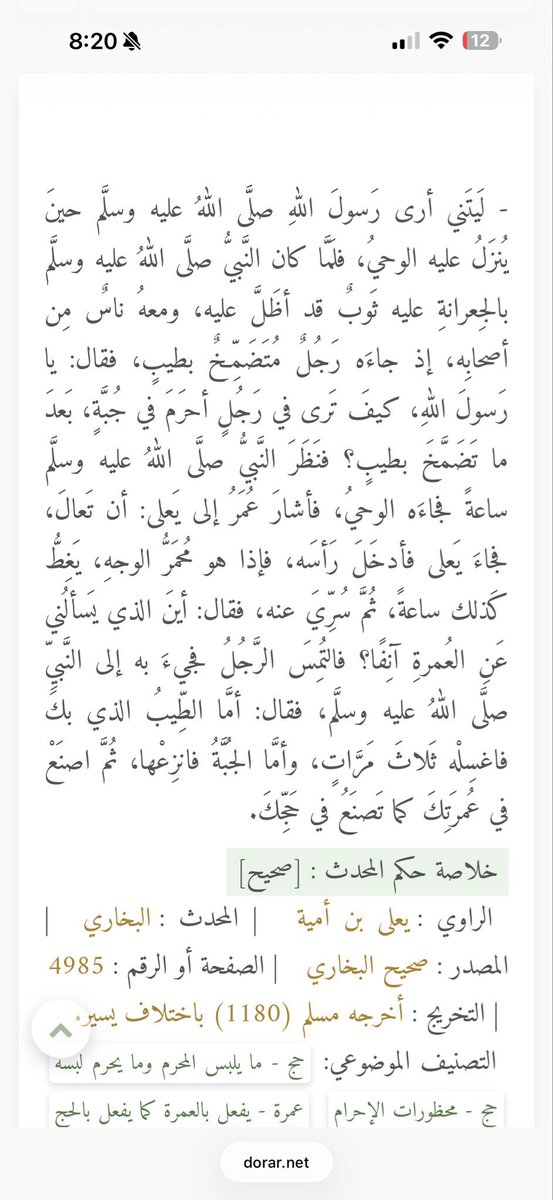 8:20
12
- لَيتَني أرى رَسولَ اللهِ صلَّى اللهُ عليه وسلَّم حينَ
يُنزَلُ عليه الوحيُ، فلَمَّا كان النَّبيُّ صلَّى اللهُ عليه وسلَّم
بالجعرانةِ عليه ثَوبٌ قد أظَلَّ عليه، ومعهُ ناسٌ مِن
أصحابِه، إذ جاءَه رَجُلٌ مُتَضَمِّخٌ بطيبٍ، فقال: يا
رَسولَ اللهِ، كيفَ تَرى في رَجُلٍ أحرَمَ في جُبَّةٍ، بَعدَ
ما تَضَمَّخَ بطيبٍ؟ فنَظَرَ النَّبيُّ صلَّى اللهُ عليه وسلَّم
ساعةً فجاءَه الوحيُ، فأشارَ عُمَرُ إلى يَعلى: أن تَعالَ،
فجاءَ يَعلى فأدخَلَ رَأسَه، فإذا هو مُحمَرُّ الوجهِ، يَغِطُّ
كَذلك ساعةً، ثُمَّ سُرِّيَ عنه، فقال: أينَ الذي يَسألُني
عَنِ العُمرةِ آنِفًا؟ فالتُمِسَ الرَّجُلُ فجيءَ به إلى النَّبيِّ
صلَّى اللهُ عليه وسلَّم، فقال: أمَّا الطِّيبُ الذي بكَ
فاغسِلْه ثَلاثَ مَرَّاتٍ، وأمَّا الجُبَّةُ فانزِعْها، ثُمَّ اصنَعْ
في عُمرَتِكَ كما تَصنَعُ في حَجِّكَ.
خلاصة حكم المحدث : [صحيح]
الراوي : يعلى بن أمية | المحدث : البخاري |
المصدر : صحيح البخاري | الصفحة أو الرقم : 4985
| التخريج : أخرجه مسلم (1180) باختلاف يسير.
التصنيف الموضوعي: حج - ما يلبس المحرم وما يحرم لبسه
حج - محظورات الإحرام عمرة - يفعل بالعمرة كما يفعل بالحج
dorar.net